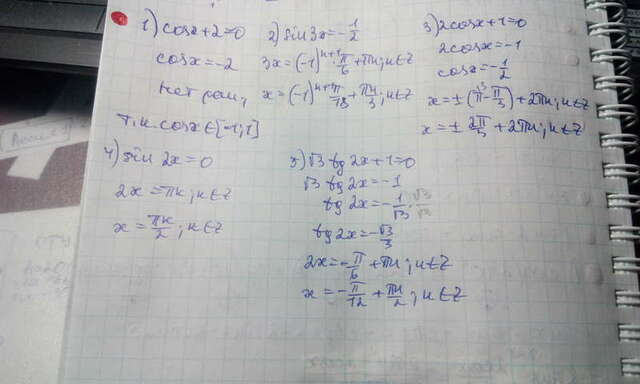 1) cosx+2=0
cosx=-2
нет реш,
т.к. cosx∈[-1;1]
2) sin3x=-1/2
3x=(-1)^(n+1)·π/6+πn;n∈Z
x=(-1)^(n+1)π/18+πn/3;n∈Z
3) 2cosx+1=0
2cosx=-1
cosx=-1/2
x=±(π-π/3)+2πn;n∈Z
x=±2π/3+2πn;n∈Z
4) sin2x=0
2x=πn;n∈Z
x=πn/2;n∈Z
5) √3 tg2x+1=0
√3 tg2x=-1
tg2x=-1/√3·√3/√3
tg2x=-√3/3
2x=-π/6+πn;n∈Z
x=-π/12+πn/2;n∈Z